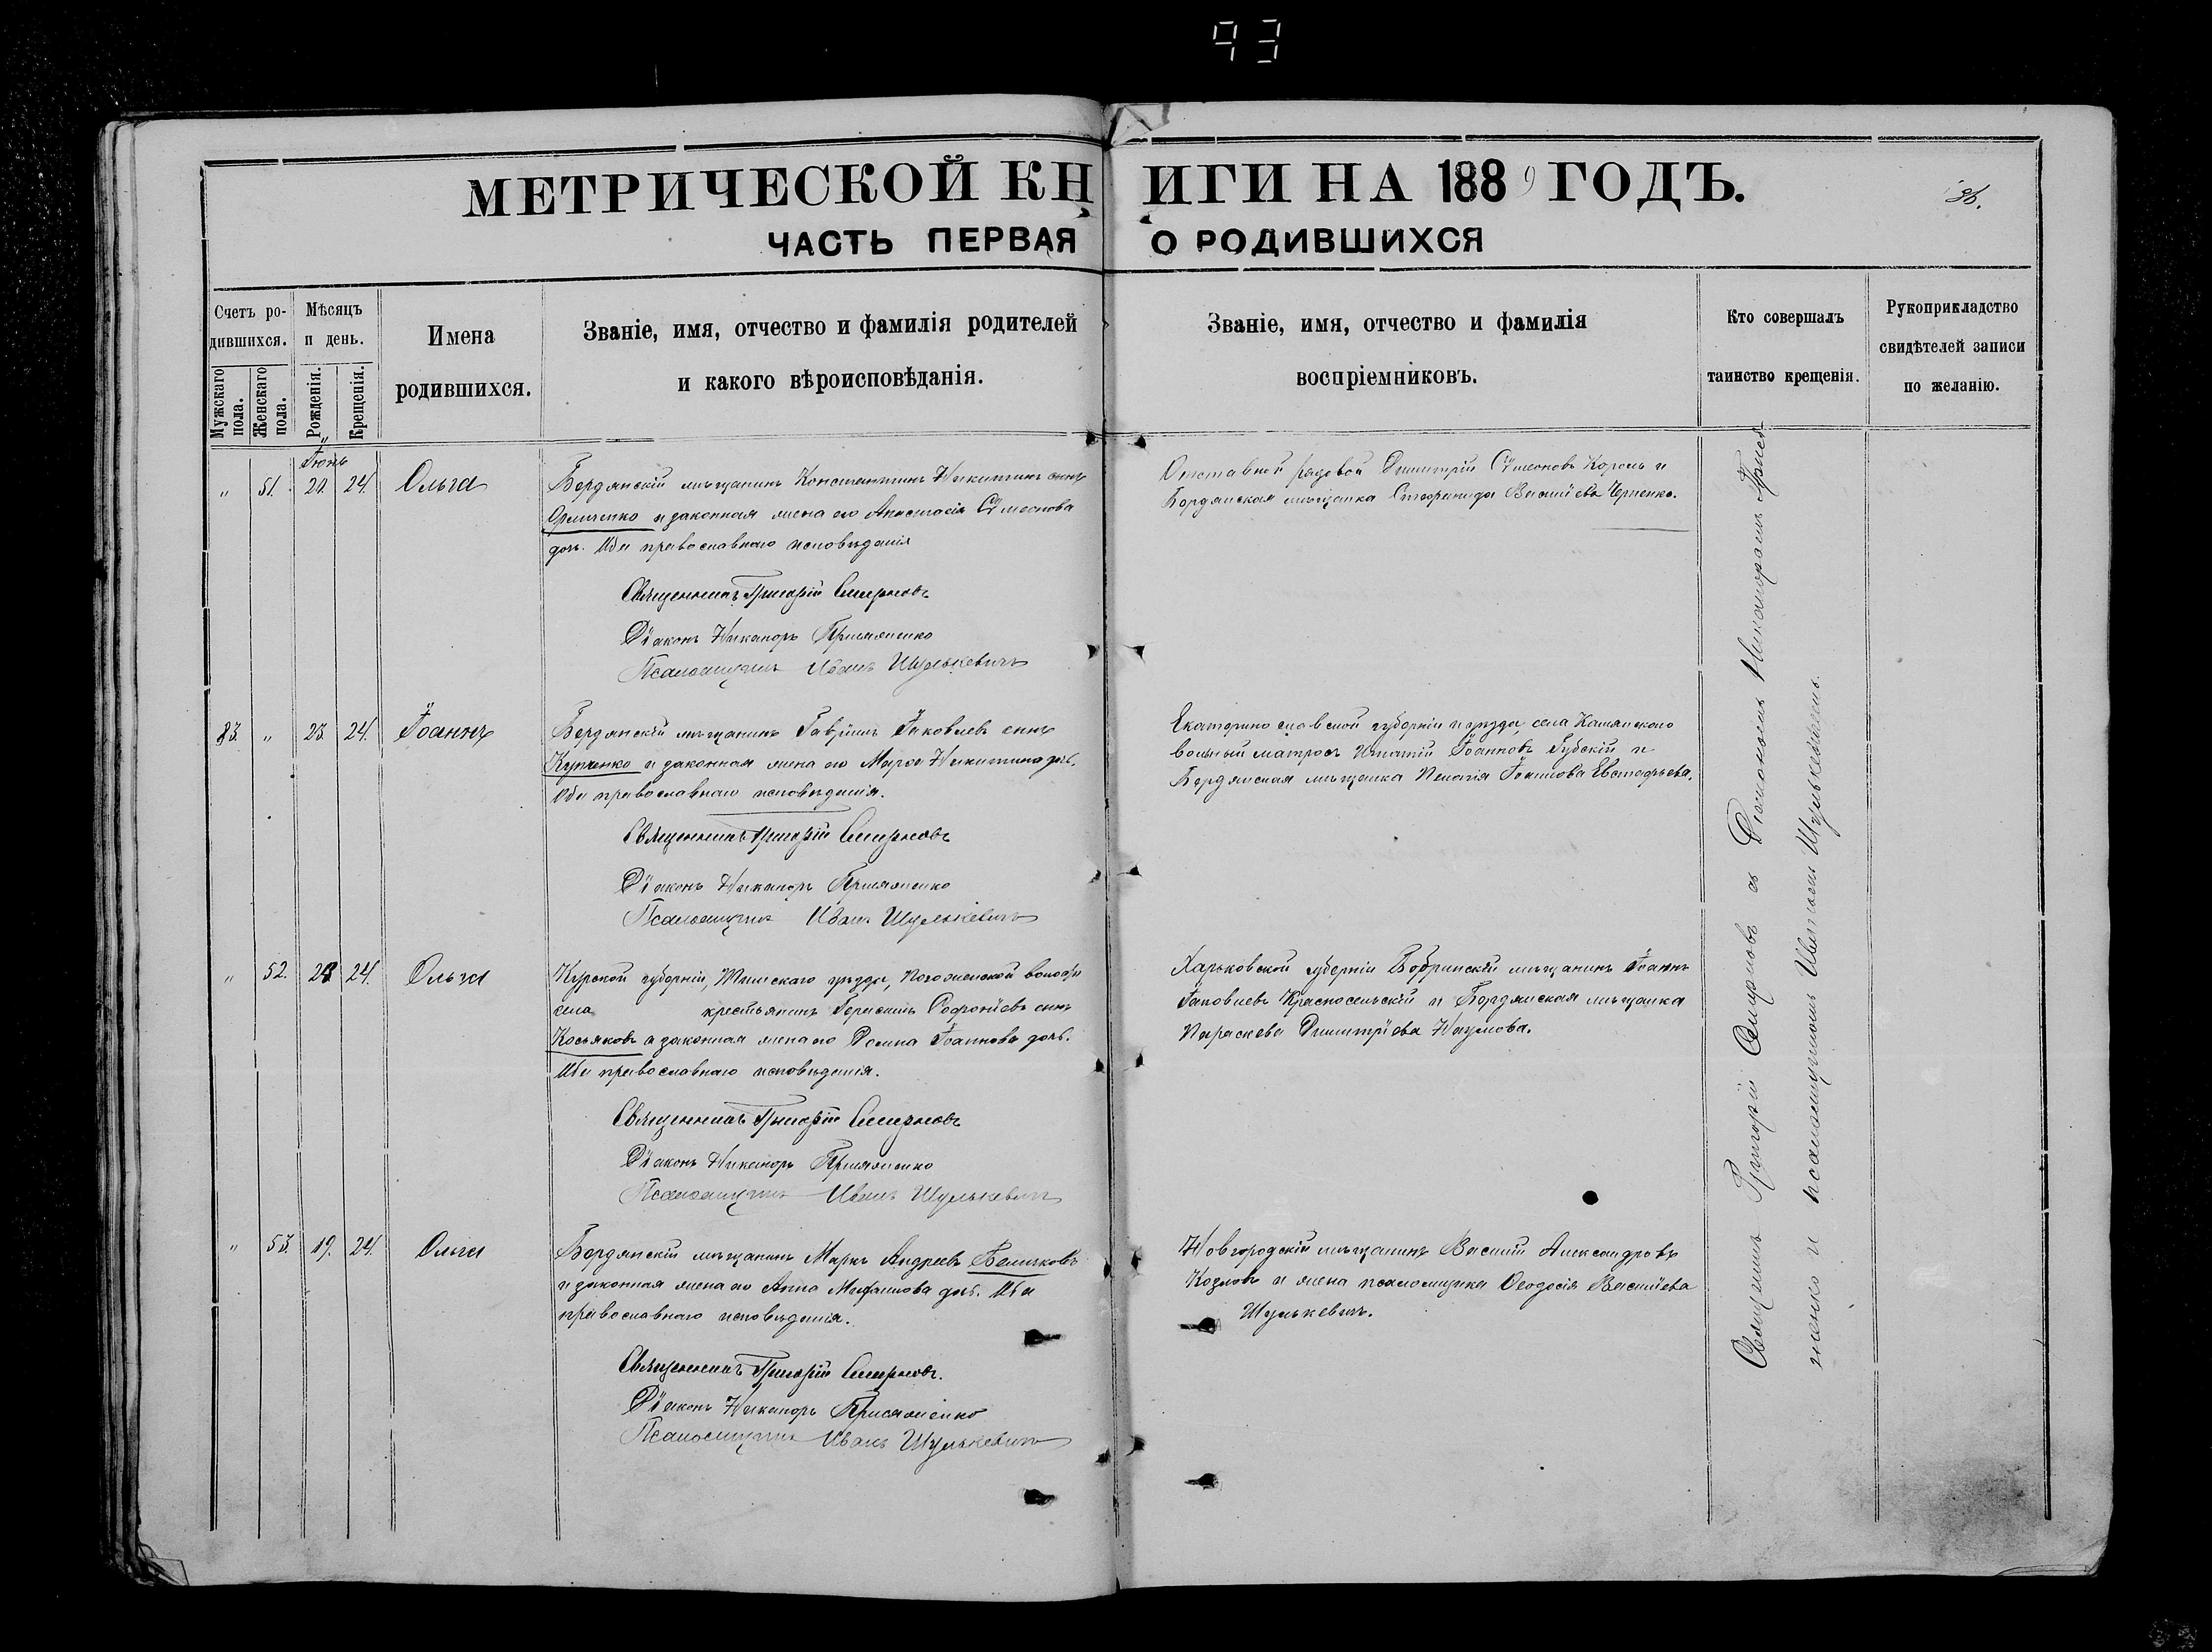 93
МЕТРИЧЕСКОЙ КНИГИ НА 1889 ГОДЪ.
ЧАСТЬ ПЕРВАЯ О РОДИВШИХСЯ
Счетъ ро-
дившихся.
Мужскаго пола.
Женскаго пола.
Мѣсяцъ
и день.
Рожденія.
Крещенія.
Имена
родившихся.
Званіе, имя, отчество и фамилія родителей
и какого вѣроисповѣданія.
Званіе, имя, отчество и фамилія
воспріемниковъ.
Кто совершалъ
таинство крещенія.
Рукоприкладство
свидѣтелей записи
по желанію.
Іюнь
" 51. 20. 24. Ольга
Бердянскій мѣщанинъ Константинъ Никитинъ сынъ
и законная жена его Анастасія Сѵмеонова
дочь. Оба православнаго исповѣданія
Священникъ Григорій Смирновъ
Діаконъ Никаноръ
Псаломщикъ Иванъ Шулькевичъ
Отставной рядовой Димитрій Сѵмеоновъ Король и
Бердянская мѣщанка Стефанида Васильева Черненко.
83. " 23. 24. Іоаннъ
Бердянскій мѣщанинъ Гавріилъ Іаковлевъ сынъ
Купченко и законная жена его Марѳа Никитина дочь.
Оба православнаго исповѣданія.
Священникъ Григорій Смирновъ
Діаконъ Никаноръ
Псаломщикъ Иванъ Шулькевичъ
Екатеринославской губерніи и уѣзда, села Каменского
вольный матросъ Игнатій Іоанновъ Губскій и
Бердянская мѣщанка Пелагія Іоаннова Евстафьева.
" 52. 23 24. Ольга
Курской губерніи, Тимскаго уѣзда, волости
села крестьянинъ Герасимъ Софоніевъ сынъ
Косьяковъ и законная жена его Домна Іоаннова дочь.
Оба православнаго исповѣданія.
Священникъ Григорій Смирновъ
Діаконъ Никаноръ
Псаломщикъ Иванъ Шулькевичъ
Харьковской губерніи мѣщанинъ Іоаннъ
Іаковлевъ Красносельскій и Бердянская мѣщанка
Параскева Димитріева Наумова.
" 53. 19. 24. Ольга
Бердянскій мѣщанинъ Маркъ Андреевъ Беличковъ
и законная жена его Анна дочь. Оба
православнаго исповѣданія.
Священникъ Григорій Смирновъ.
Діаконъ Никаноръ
Псаломщикъ Иванъ Шулькевичъ
Новгородскій мѣщанинъ Василій Александровъ
Козловъ и жена псаломщика Ѳеодосія Васильева
Шулькевичъ.
Священникъ Григорій Смирновъ съ Діакономъ Никаноромъ
и псаломщикомъ Иваномъ Шулькевичемъ.